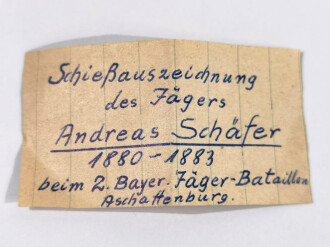 Schießauszeichnung
des Jägers
Andreas Schäfer
1880-1883
beim 2. Bayer. Jäger-Bataillon
Aschaffenburg.